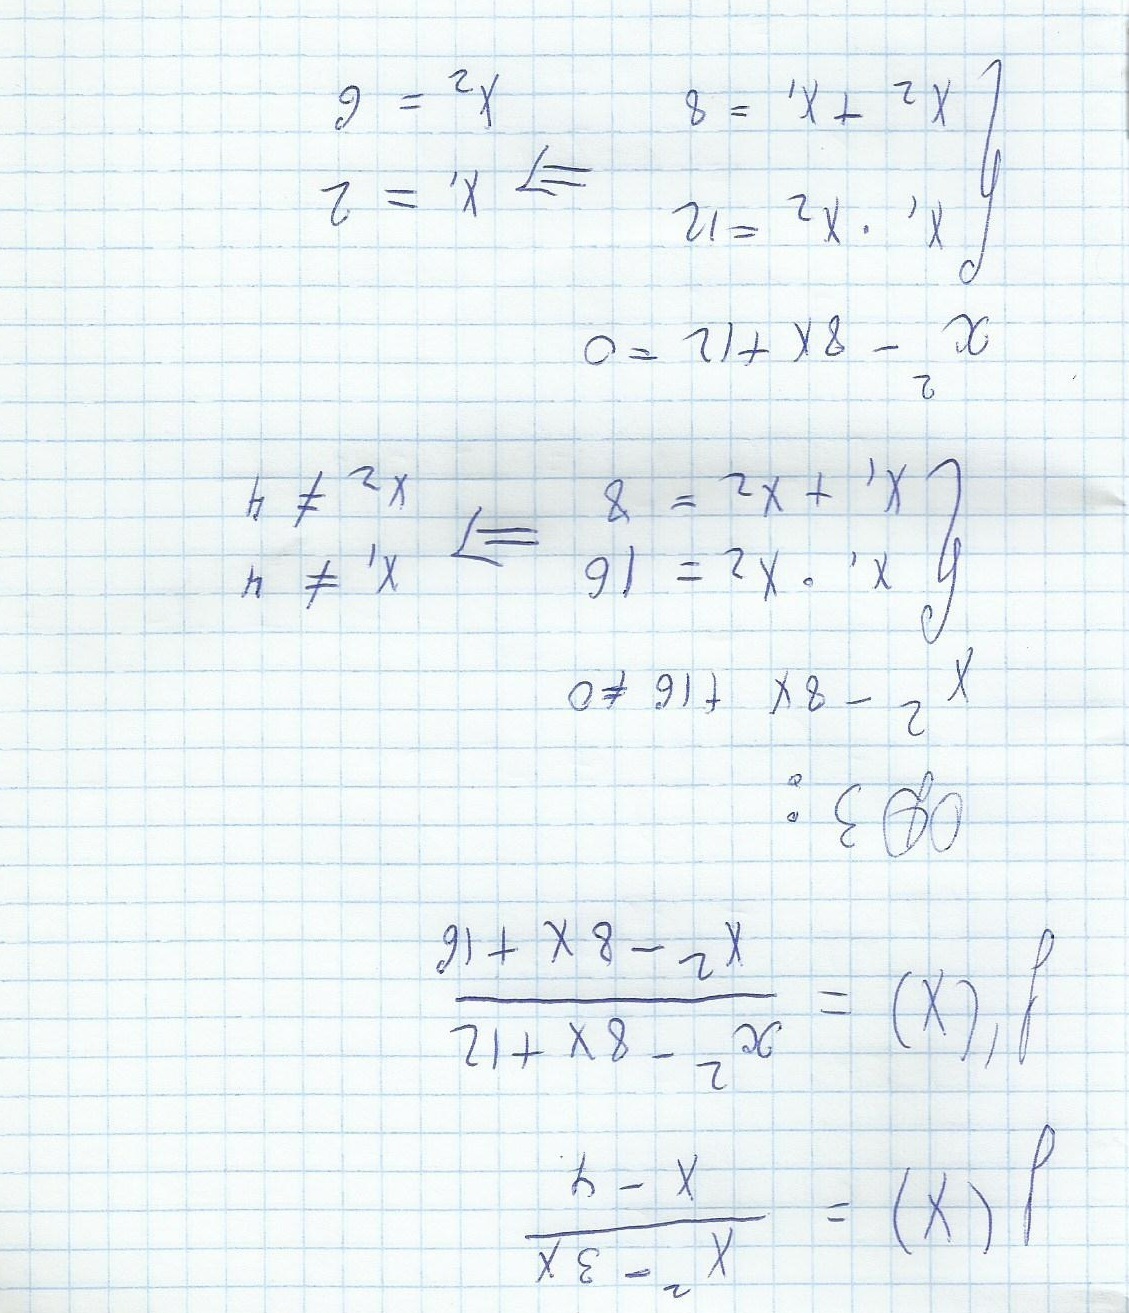 f(x) = (x² - 3x)/(x - 4)
f'(x) = (x² - 8x + 12)/(x² - 8x + 16)
ОДЗ:
x² - 8x + 16 ≠ 0
{ x₁ · x₂ = 16 => x₁ ≠ 4
{ x₁ + x₂ = 8 x₂ ≠ 4
x² - 8x + 12 = 0
{ x₁ · x₂ = 12 => x₁ = 2
{ x₂ + x₁ = 8 x₂ = 6